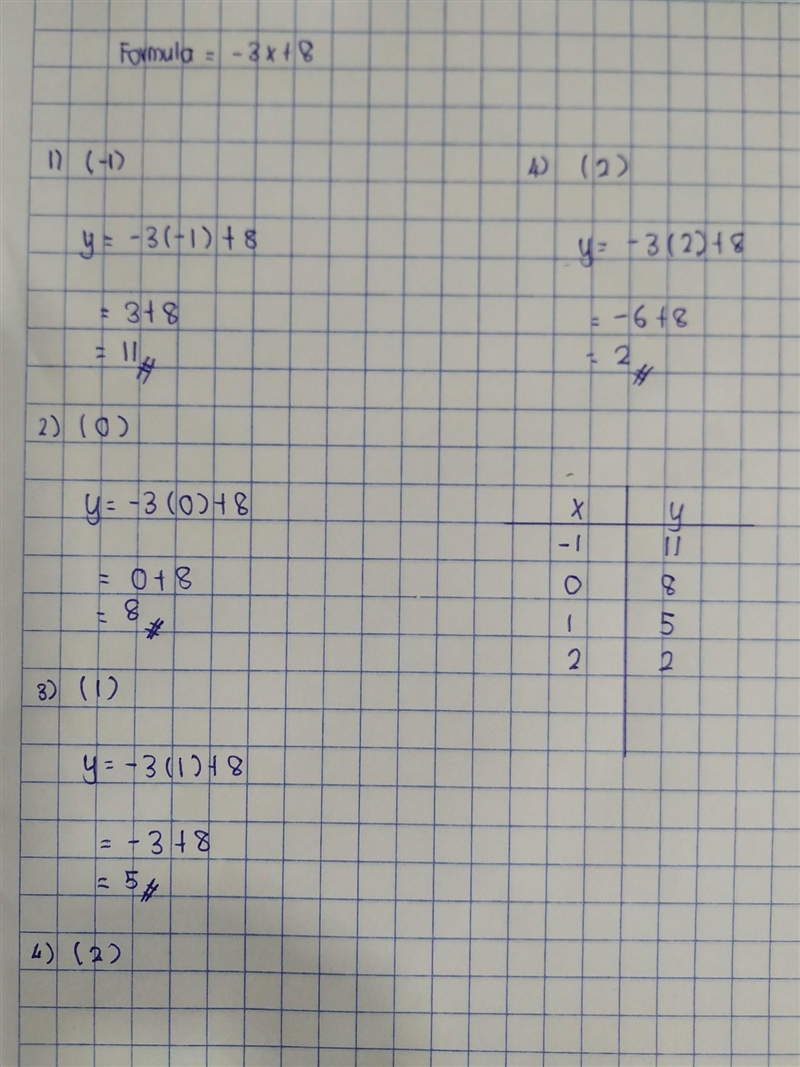 Formula = -3x+8
1) (-1)
y= -3(-1)+8
= 3+8
= 11#
2) (0)
y= -3(0)+8
= 0+8
= 8#
3) (1)
y= -3(1)+8
= -3+8
= 5#
4) (2)
4) (2)
y= -3(2)+8
= -6+8
= 2#
x y
-1 11
0 8
1 5
2 2